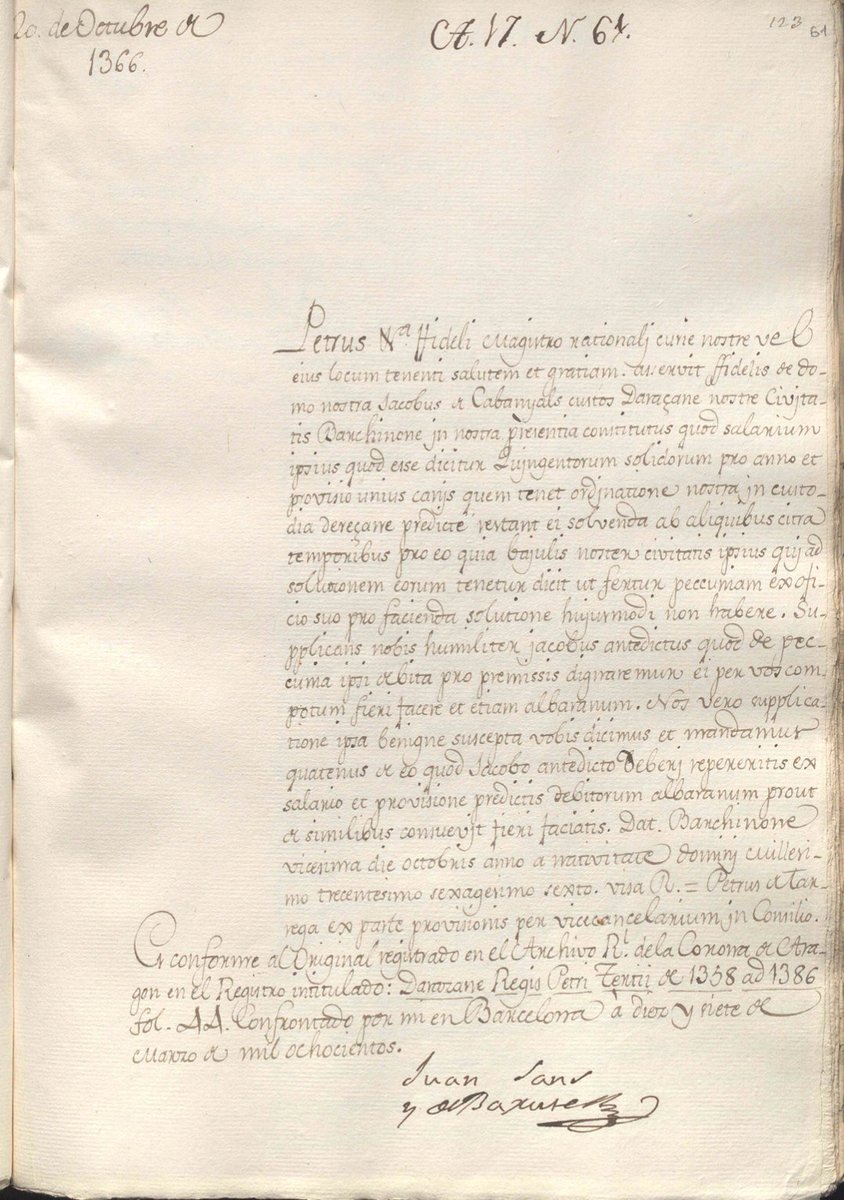 20. de Octubre de
1366.
Art. 17. N. 61.
123
61
Petrus &ª. ffideli Magistro rationalj curie nostre vel
eius locum tenenti salutem et gratiam. Asservit ffidelis de do-
mo nostra Jacobus de Cabanyals custos Daraçane nostre Civita-
tis Barchinone jn nostra presentia constitutus quod salarium
ipsius quod esse dicitur Qujngentorum solidorum pro anno et
provisio unius canjs quem tenet ordjnatione nostra jn custo-
dia dereçane predicte restant ei solvenda ab aliquibus citra
temporibus pro eo quia bajulus noster civitatis ipsius quj ad
solutionem eorum tenetur dicit ut fertur peccuniam ex ofi-
cio suo pro facienda solutione hujusmodi non habere. Su-
pplicans nobis humiliter jacobus antedictus quod de pec-
cunia ipsi debita pro premissis dignaremur ei per vos com-
potum fieri facere et etiam albaranum. Nos vero supplica-
tione ipsa benigne suscepta vobis dicimus et mandamus
quatenus de eo quod Jacobo antedicto deberj repereritis ex
salario et provisione predictis debitorum albaranum prout
de similibus consuevjt fieri faciatis. Dat. Barchinone
vicesima die octobris anno a nativitate dominj Millesi-
mo trecentesimo sexagesimo sexto. visa R. = Petrus de Tar-
rega ex parte provisionis per vicecancelarium jn Consilio.
Es conforme al Original registrado en el Archivo Rl. de la Corona de Ara-
gon en el Registro intitulado: Darazane Regis Petri Tertii de 1358 ad 1386
fol. 44. Confrontado por mi en Barcelona à diez y siete de
Marzo de mil ochocientos.
Juan Sans
y de Barutell